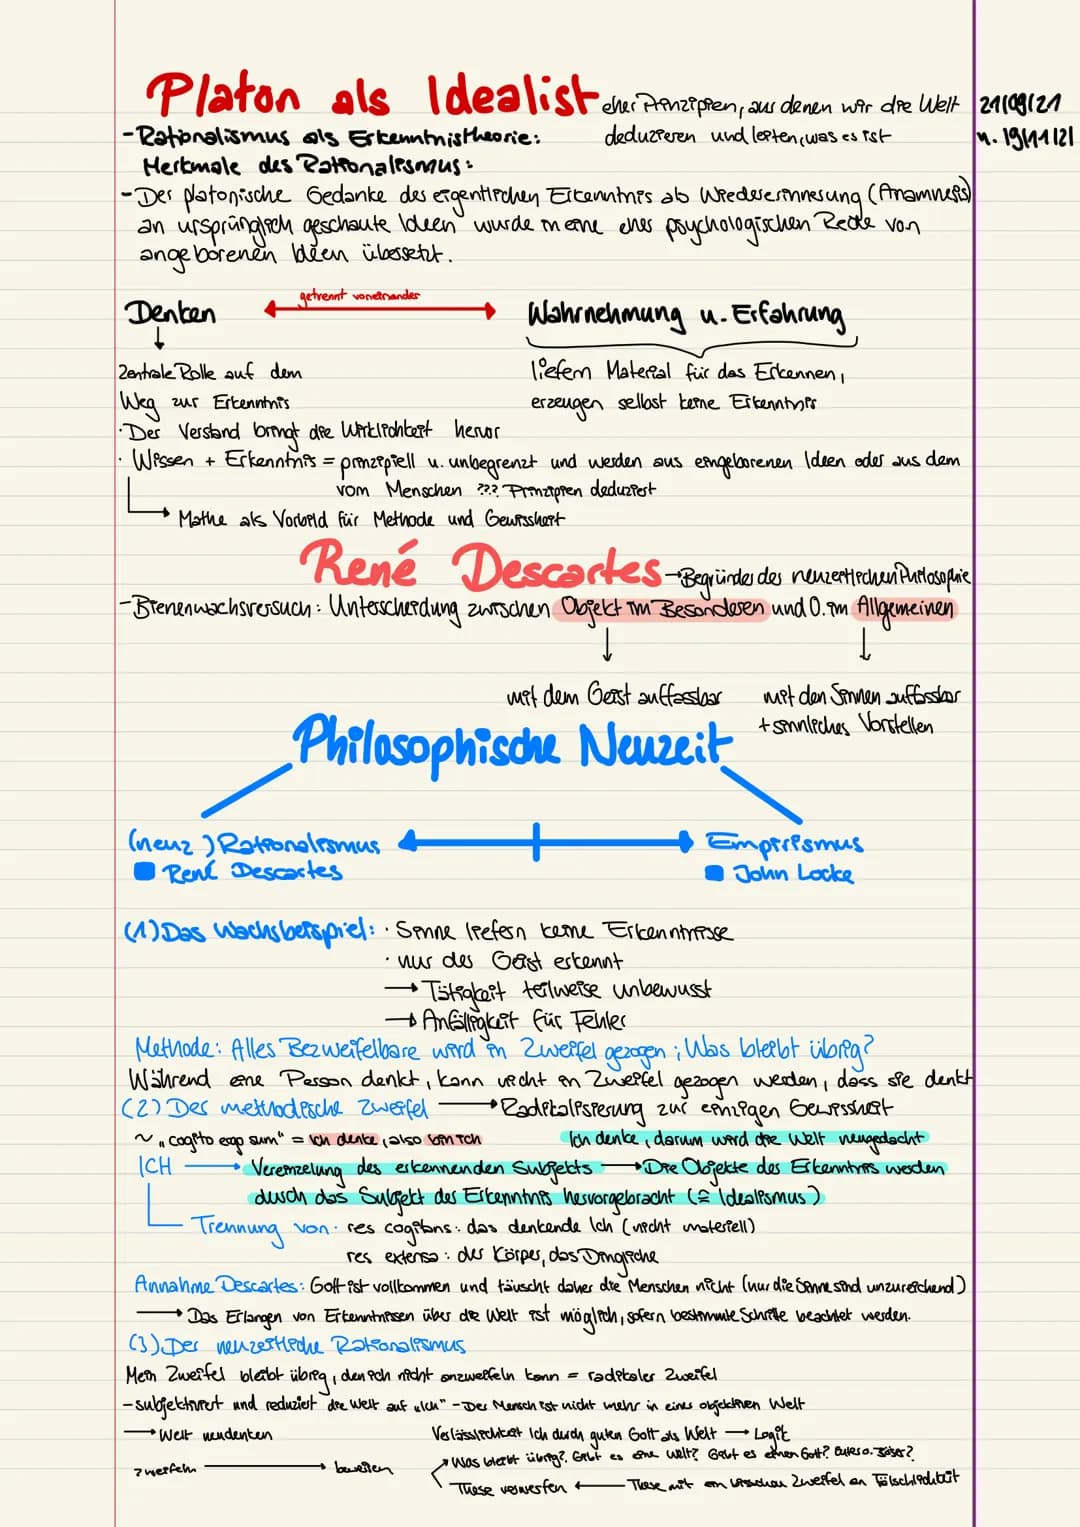 Platon als Idealist
eher Prinzipien, aus denen wir die Welt
21/09/21
-Rationalismus als Erkenntnistheorie:
deduzieren und leiten, was es ist
u. 19/11/21
Merkmale des Rationalismus:
-Der platonische Gedanke des eigentlichen Erkenntnis als Wiedererinnerung (Anamnesis)
an ursprünglich geschaute Ideen wurde in eine eher psychologischen Rede von
angeborenen Ideen übersetzt.
Denken
getrennt voneinander
Wahrnehmung u. Erfahrung
Zentrale Rolle auf dem
Weg zur Erkenntnis
liefern Material für das Erkennen,
erzeugen selbst keine Erkenntnis
· Der Verstand bringt die Wirklichkeit hervor
· Wissen + Erkenntnis = prinzipiell u. unbegrenzt und werden aus eingeborenen Ideen oder aus dem
vom Menschen ??? Prinzipien deduziert
Mathe als Vorbild für Methode und Gewissheit
René Descartes → Begründer der neuzeitlichen Philosophie
-Bienenwachsversuch: Unterscheidung zwischen Objekt im Besonderen und O. im Allgemeinen
mit dem Geist auffassbar
mit den Sinnen auffassbar
+ sinnliches Vorstellen
Philosophische Neuzeit
(neuz.) Rationalismus
Empirismus
René Descartes
John Locke
(1) Das Wachsbeispiel: · Sinne liefern keine Erkenntnisse
· nur der Geist erkennt
→ Tätigkeit teilweise unbewusst
→ Anfälligkeit für Fehler
Methode: Alles Bezweifelbare wird in Zweifel gezogen; Was bleibt übrig?
Während eine Person denkt, kann nicht in Zweifel gezogen werden, dass sie denkt
(2) Der methodische Zweifel → Radikalisierung zur einzigen Gewissheit
~ „cogito ergo sum" = Ich denke, also bin ich
Ich denke, darum wird die Welt neugedacht
ICH → Vereinzelung des erkennenden Subjekts → Die Objekte der Erkenntnis werden
durch das Subjekt der Erkenntnis hervorgebracht (≙ Idealismus)
Trennung von · res cogitans: das denkende Ich (nicht materiell)
res extensa: der Körper, das Dingliche
Annahme Descartes: Gott ist vollkommen und täuscht daher die Menschen nicht (nur die Sinne sind unzureichend)
→ Das Erlangen von Erkenntnissen über die Welt ist möglich, sofern bestimmte Schritte beachtet werden.
(3) Der neuzeitliche Rationalismus
Mein Zweifel bleibt übrig, den ich nicht anzweifeln kann = radikaler Zweifel
-subjektiviert und reduziert die Welt auf „Ich" - Der Mensch ist nicht mehr in einer objektiven Welt
→ Welt neudenken
Verlässlichkeit Ich durch guten Gott als Welt → Logik
zweifeln → beweisen
Was bleibt übrig? Gibt es eine Welt? Gibt es einen Gott? Guter o. Böser?
These verwerfen ← These mit ein bisschen Zweifel an Fälschlichkeit